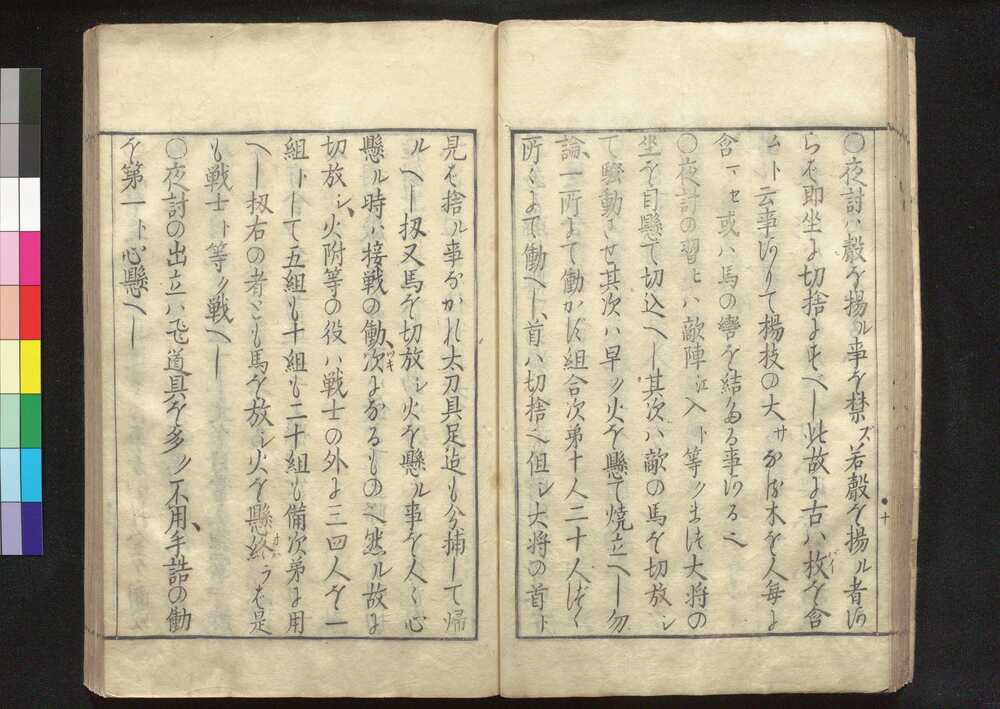 ○夜討ハ聲を揚ル事を禁ズ若聲を揚ル者あ
らバ即坐に切捨にすべし此故に古ハ枚を含
ムト云事ありて楊枝の大サなる木を人毎に
含マセ或ハ馬の轡を結たる事ある也
○夜討の習ヒハ敵陣江入ト等クまづ大将の
坐を目懸て切込べし其次ハ敵の馬を切放シ
て騒動させ其次ハ早ク火を懸て焼立べし勿
論一所にて働かず組合次第十人二十人づゝ
所々にて働べし首ハ切捨也但シ大将の首ト
十
見バ捨ル事なかれ太刀具足迄も分捕して帰
ルべし扨又馬を切放シ火を懸ル事を人々心
懸ル時ハ接戦の働次になるもの也然ル故に
切放シ、火附等の役ハ戦士の外に三四人を一
組トして五組も十組も二十組も備次第に用
べし扨右の者ども馬を放シ火を懸終ラバ是
も戦士ト等ク戦べし
○夜討の出立ハ飛道具を多ク不用、手詰の働
を第一ト心懸べし